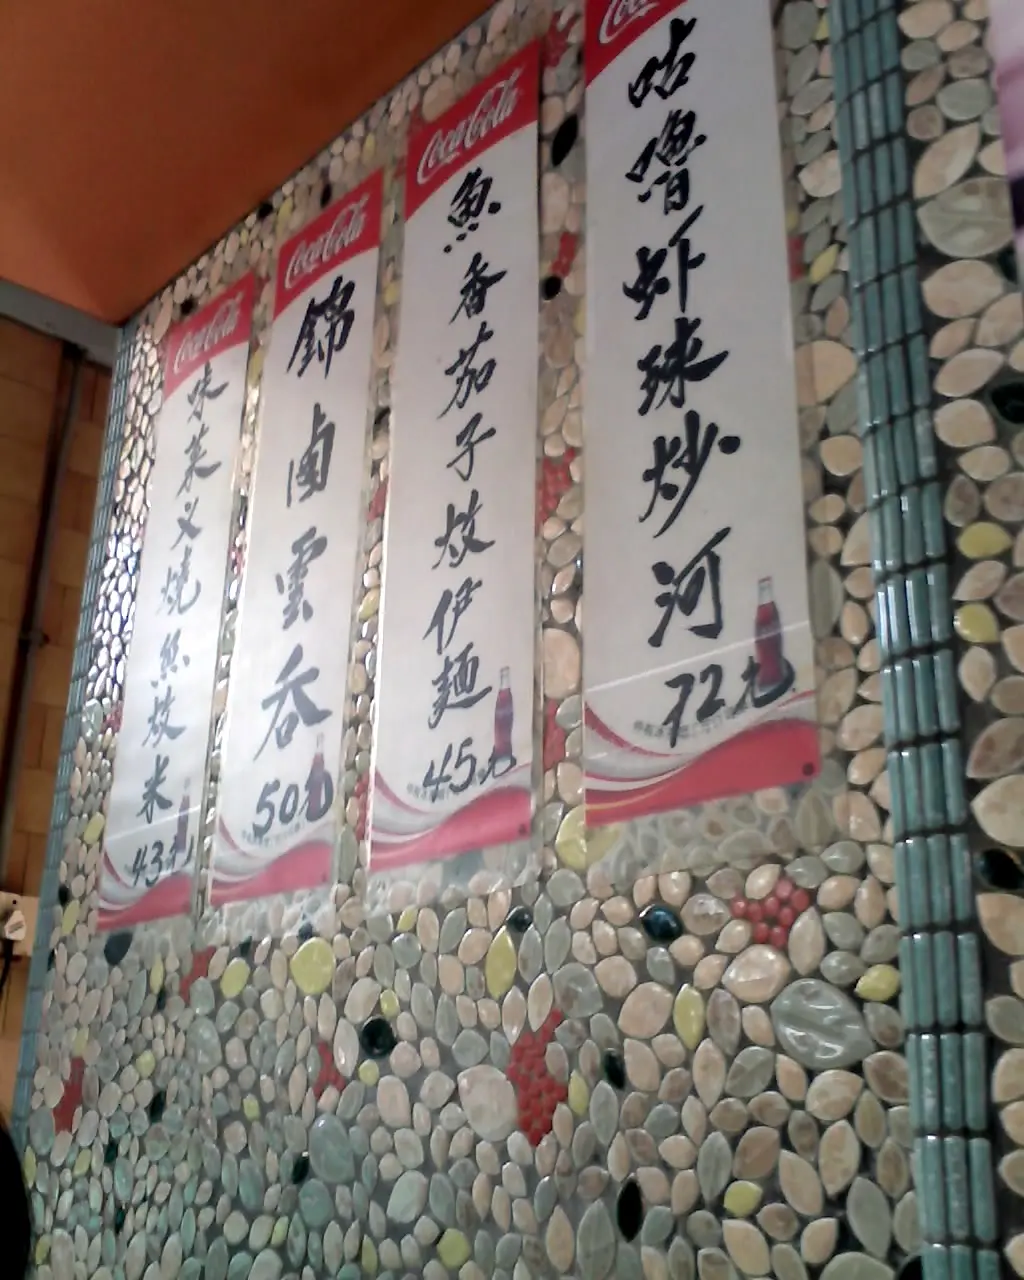 Coca-Cola
味菜叉燒絲炆米
43元
Coca-Cola
錦鹵雲吞
50元
Coca-Cola
魚香茄子炆伊麵
45元
Coca-Cola
咕嚕虾球炒河
72元